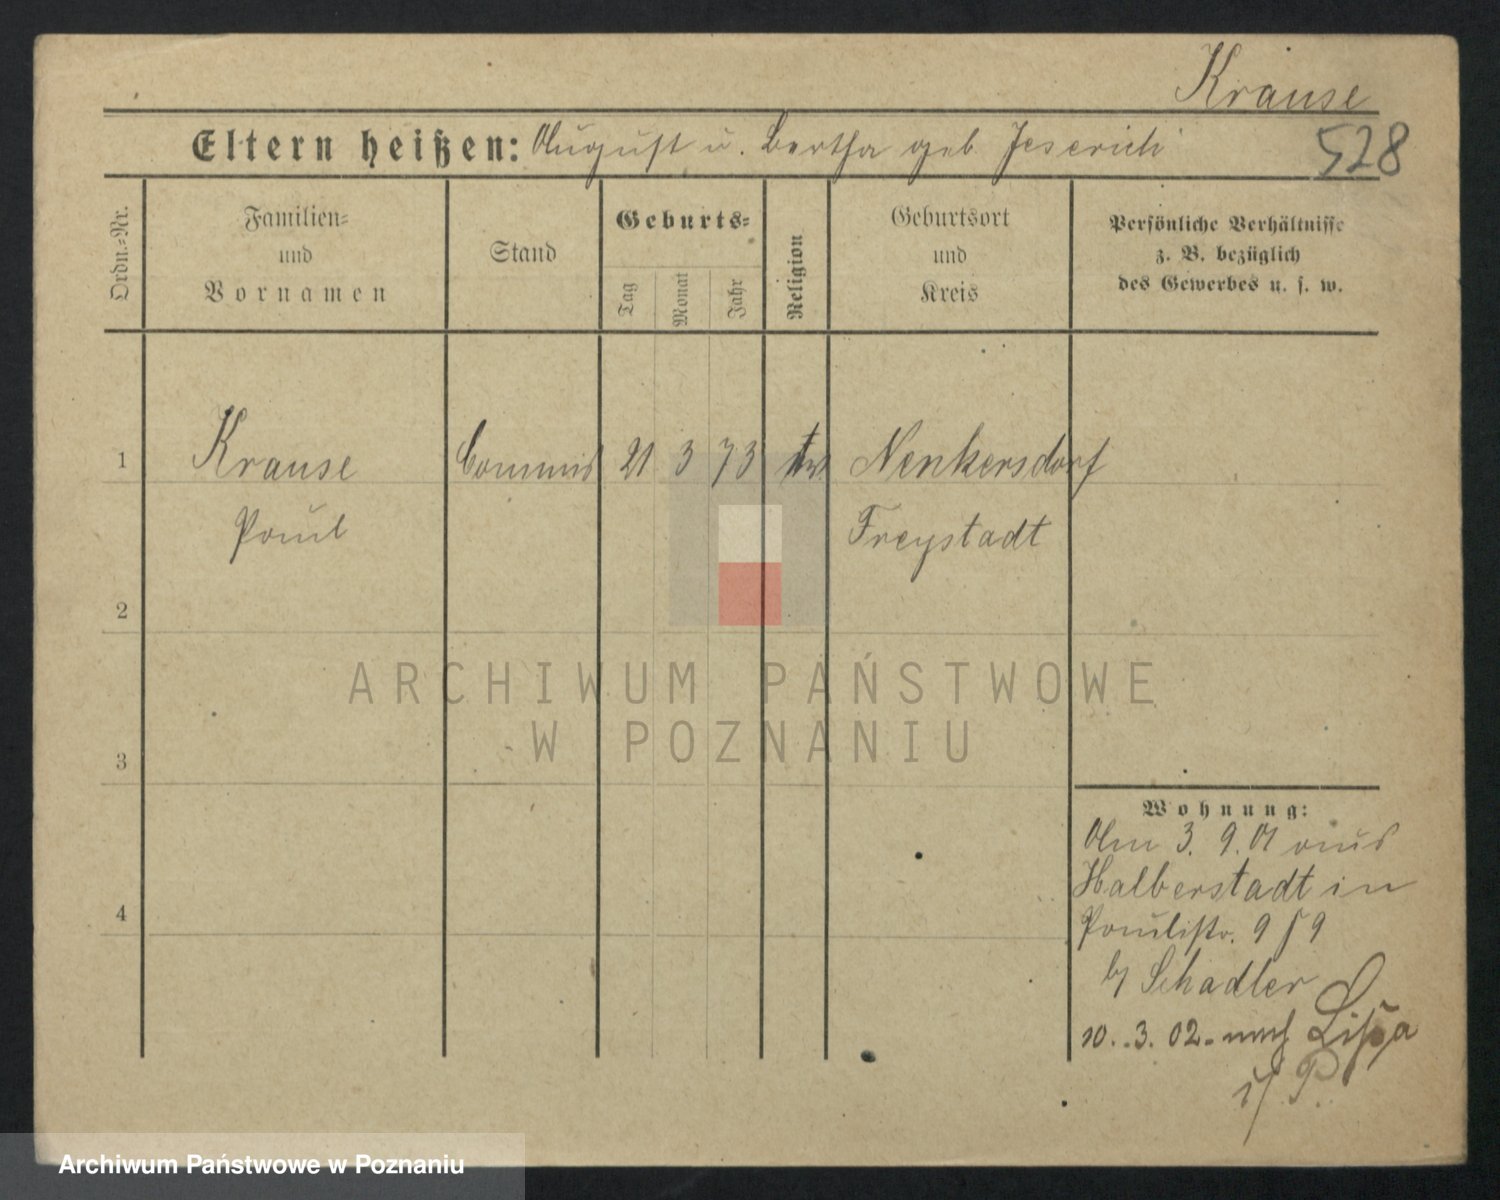 Krause
528
Eltern heißen: August u. Bertha geb. Jeserich
Ordn.=Nr.
Familien=
und
Vornamen
Stand
Geburts=
Tag
Monat
Jahr
Religion
Geburtsort
und
Kreis
Persönliche Verhältnisse
z. B. bezüglich
des Gewerbes u. s. w.
1 Krause Commis 21 3 73 ev Nenkersdorf
Paul Freystadt
2
3
4
ARCHIWUM PAŃSTWOWE
W POZNANIU
Wohnung:
Am 3. 9. 01 aus
Halberstadt in
Paulistr. 9
b/ Schadler
10. 3. 02. nach Lissa
i/ P.
Archiwum Państwowe w Poznaniu